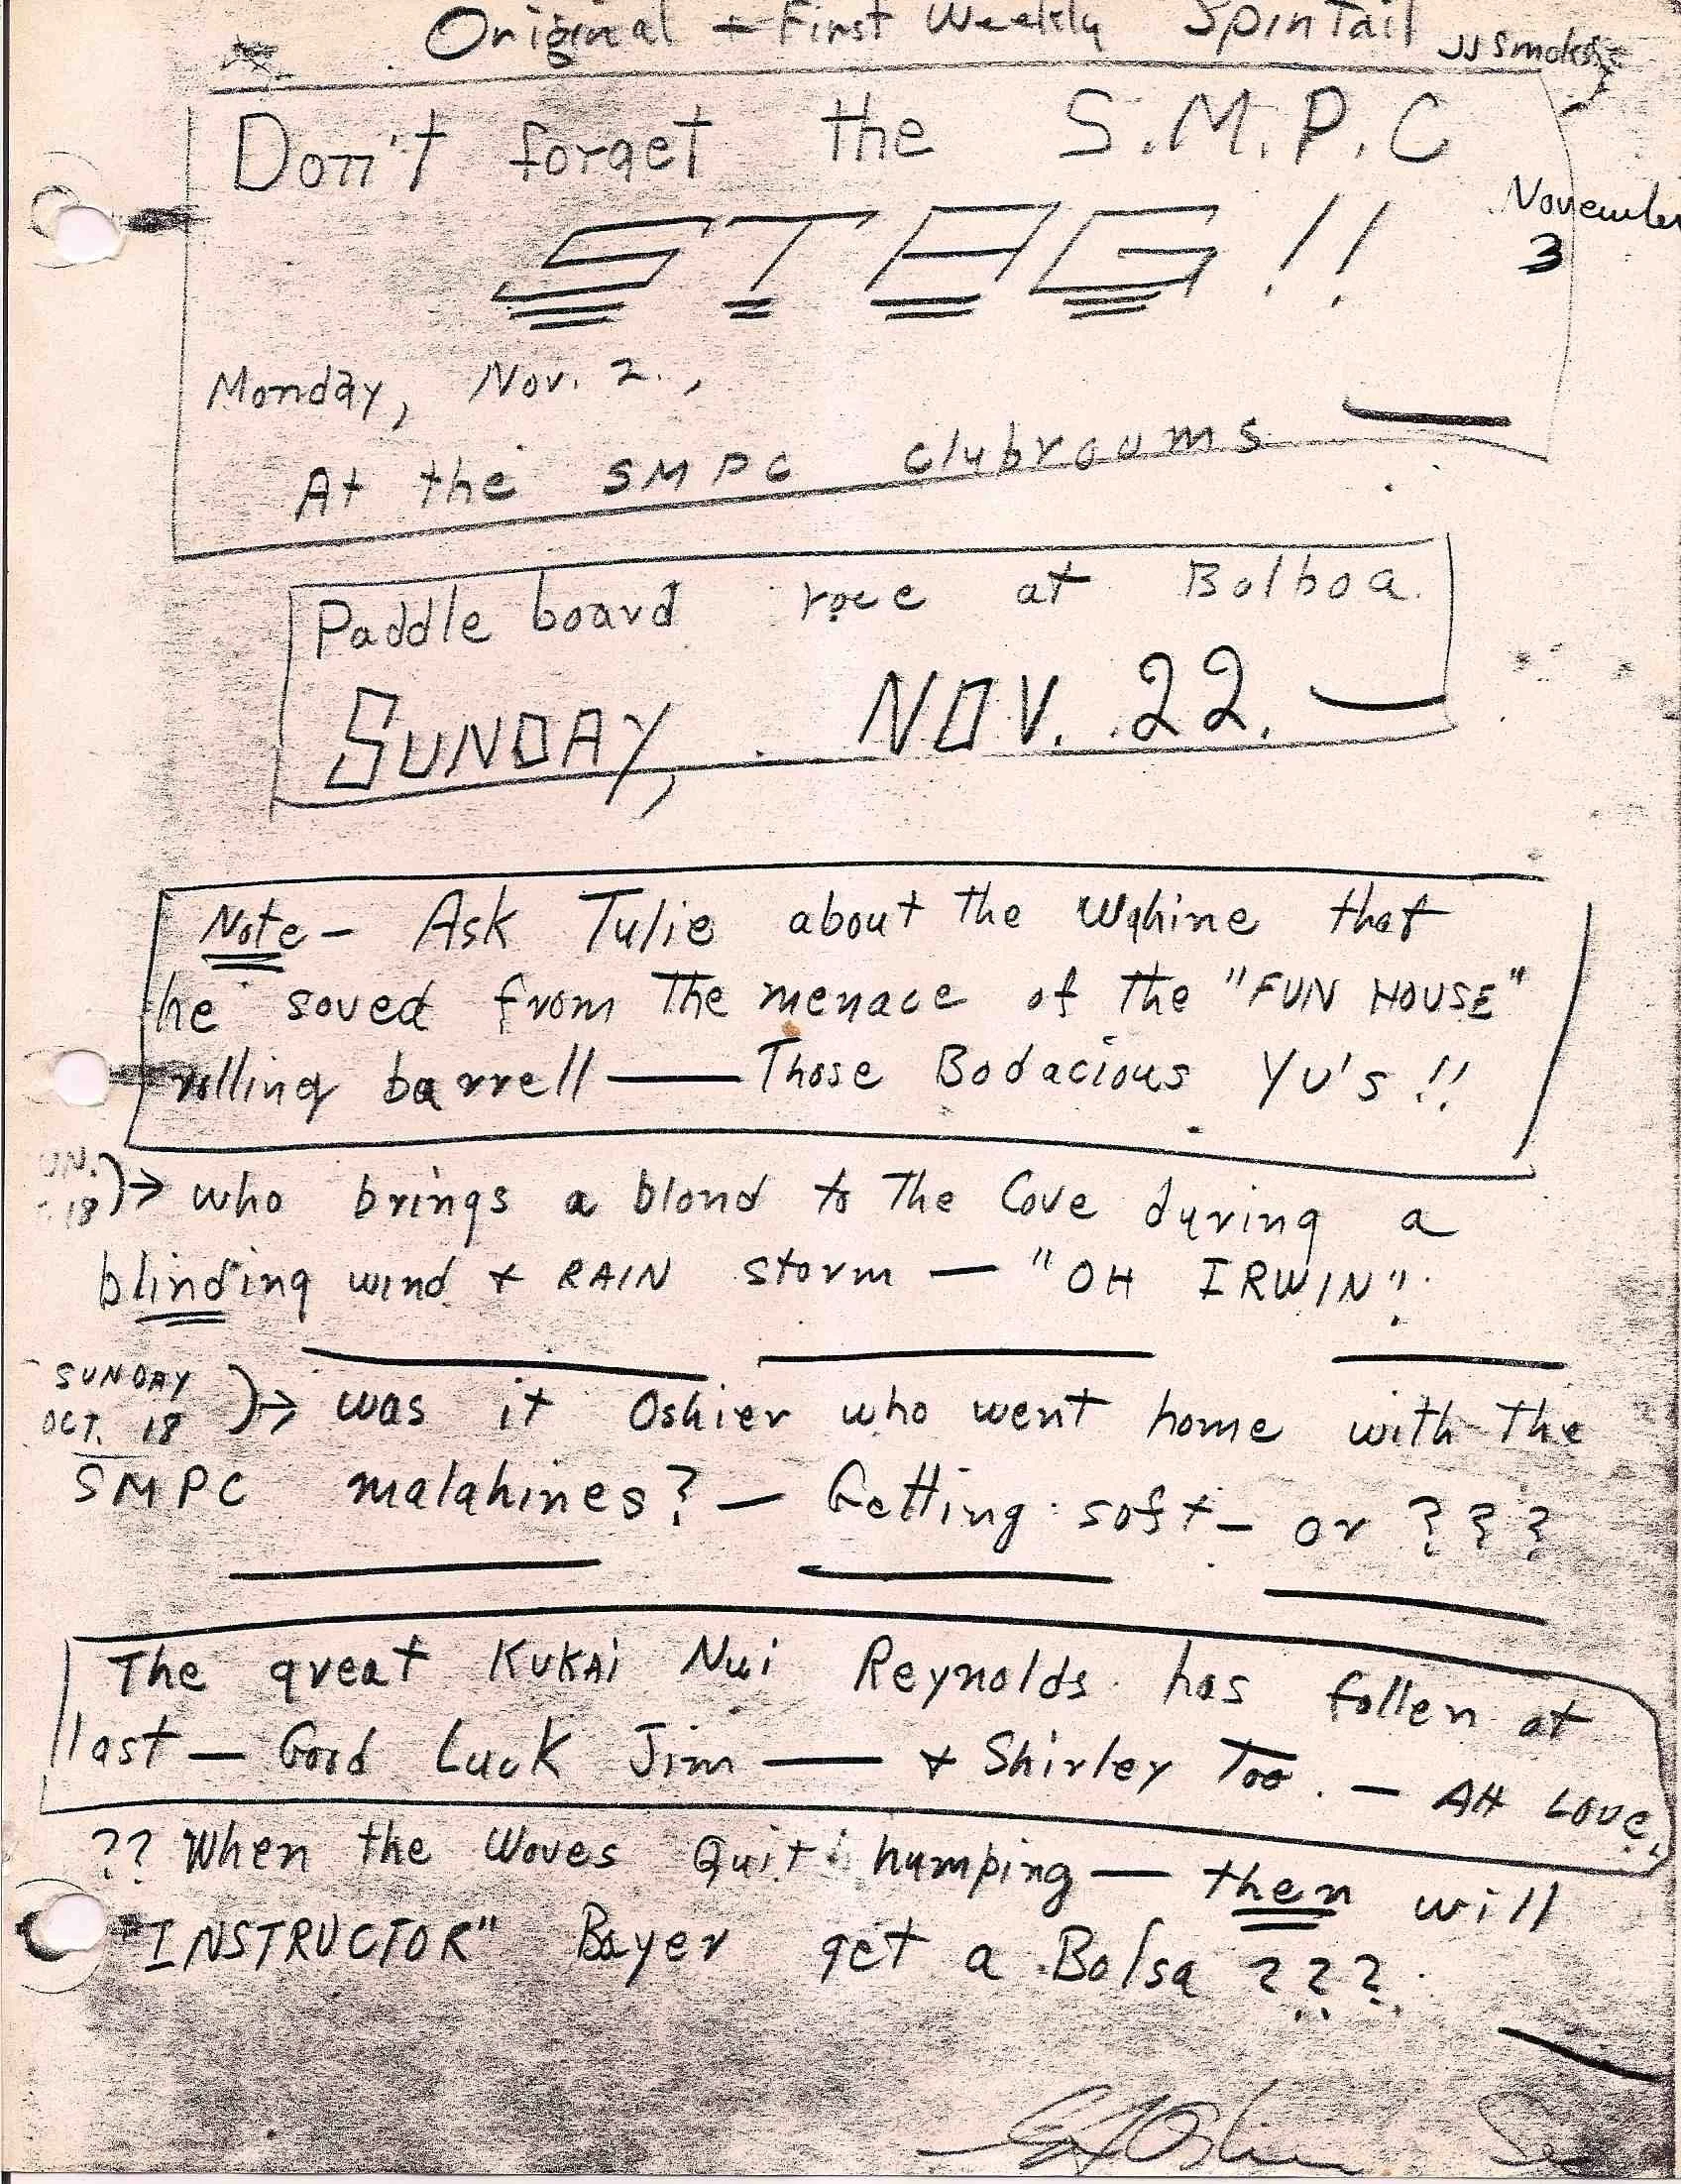 Original + First Weekly Spintail
Don't forget the S.M.P.C
November
3
STAG!!
Monday, Nov. 2.,
At the SMPC clubrooms
Paddle board race at Balboa.
SUNDAY, NOV. 22.
Note - Ask Tulie about the Wahine that
he saved from The menace of the "FUN HOUSE"
rolling barrell — Those Bodacious YU's!!
UN.
18 )→ who brings a blond to The Cove during a
blinding wind + RAIN storm — "OH IRWIN"!
SUNDAY
OCT. 18 )→ was it Oshier who went home with The
SMPC malahines? — Getting soft - or ???
The great KUKAI Nui Reynolds has fallen at
last — Good Luck Jim — + Shirley Too. — AH LOVE.
?? When the Waves Quit humping — then will
"INSTRUCTOR" Bayer get a Balsa ???